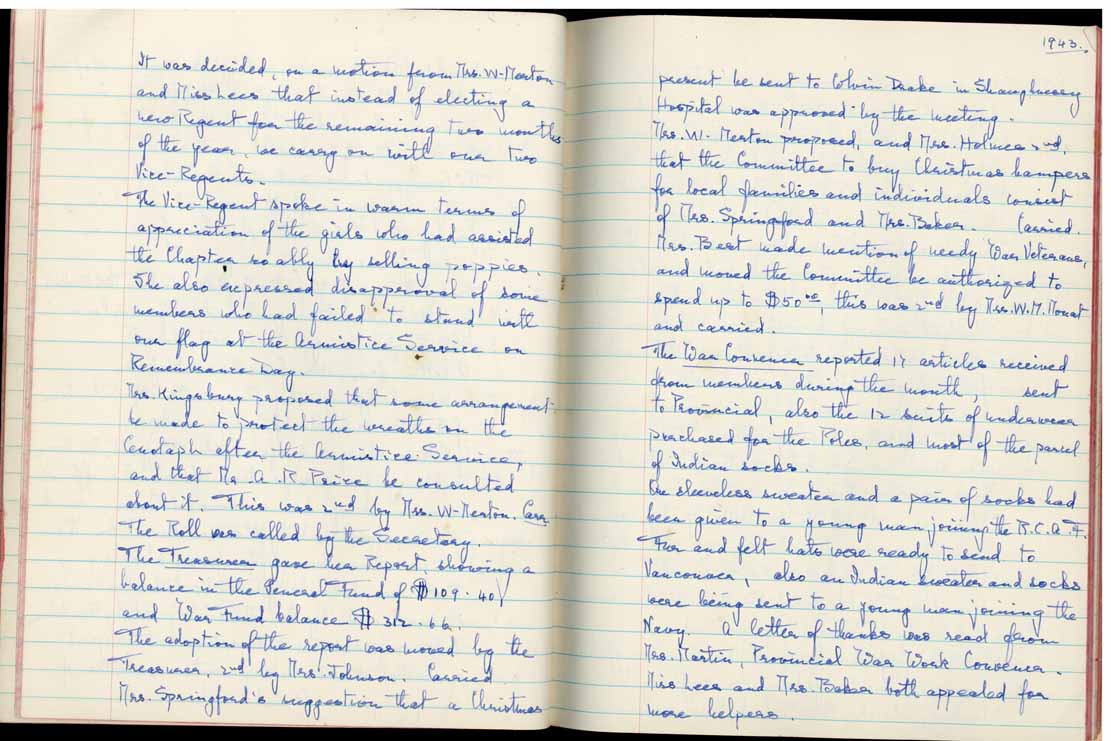 It was decided, on a motion from Mrs. W-Merton
and Miss Lees that instead of electing a
new Regent for the remaining two months
of the year, we carry on with our two
Vice-Regents.
The Vice-Regent spoke in warm terms of
appreciation of the girls who had assisted
the Chapter so ably by selling poppies.
She also expressed disapproval of some
members who had failed to stand with
our flag at the Armistice Service on
Remembrance Day.
Mrs. Kingsbury proposed that some arrangement
be made to protect the wreaths on the
Cenotaph after the Armistice Service,
and that Mr. A. R. Price be consulted
about it. This was 2nd by Mrs. W-Merton. Carr
The Roll was called by the Secretary.
The Treasurer gave her Report, showing a
balance in the General Fund of $109.40
and War Fund balance $312.66.
The adoption of the report was moved by the
Treasurer, 2nd by Mrs. Johnson. Carried
Mrs. Springford's suggestion that a Christmas
1943.
present be sent to Colvin Drake in Shaughnessy
Hospital was approved by the meeting.
Mrs. W. Merton proposed, and Mrs. Holmes 2nd,
that the Committee to buy Christmas hampers
for local families and individuals consist
of Mrs. Springford and Mrs. Baker. Carried.
Mrs. Best made mention of needy War Veterans,
and moved the Committee be authorized to
spend up to $50.00, this was 2nd by Mrs. W. M. Mouat
and carried.
The War Convener reported 17 articles received
from members during the month, sent
to Provincial, also the 12 suits of underwear
purchased for the Poles, and most of the parcel
of Indian socks.
One sleeveless sweater and a pair of socks had
been given to a young man joining the R.C.A.F.
Fur and felt hats were ready to send to
Vancouver, also an Indian sweater and socks
were being sent to a young man joining the
Navy. A letter of thanks was read from
Mrs. Martin, Provincial War Work Convener.
Miss Lees and Mrs. Baker both appealed for
more helpers.